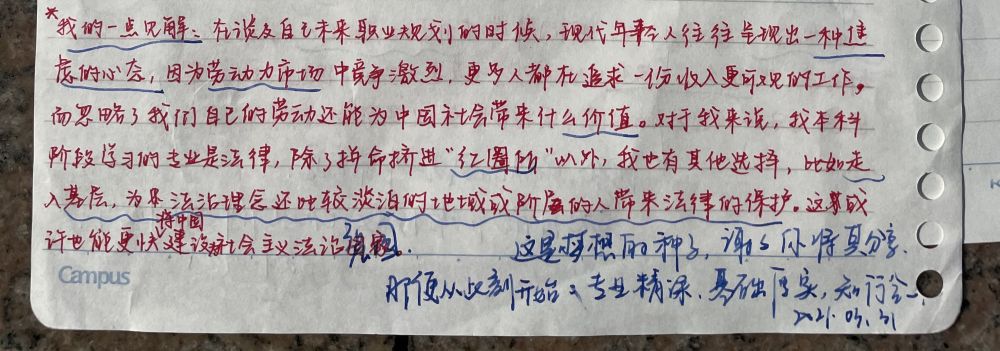 *我的一点见解：在谈及自己未来职业规划的时候，现代年轻人往往呈现出一种焦
虑的心态，因为劳动力市场中竞争激烈，更多人都在追求一份收入更可观的工作。
而忽略了我们自己的劳动还能为中国社会带来什么价值。对于我来说，我本科
阶段学习的专业是法律，除了拼命挤进“红圈所”以外，我也有其他选择，比如走
入基层，为法治理念还比较淡泊的地域或阶层的人带来法律的保护。这或
许也能更快将中国建设社会主义法治强国.
这是梦想的种子，谢谢你得真分享.
那便从此刻开始：专业精深、基础厚实，知行合一
2021.03.31
Campus